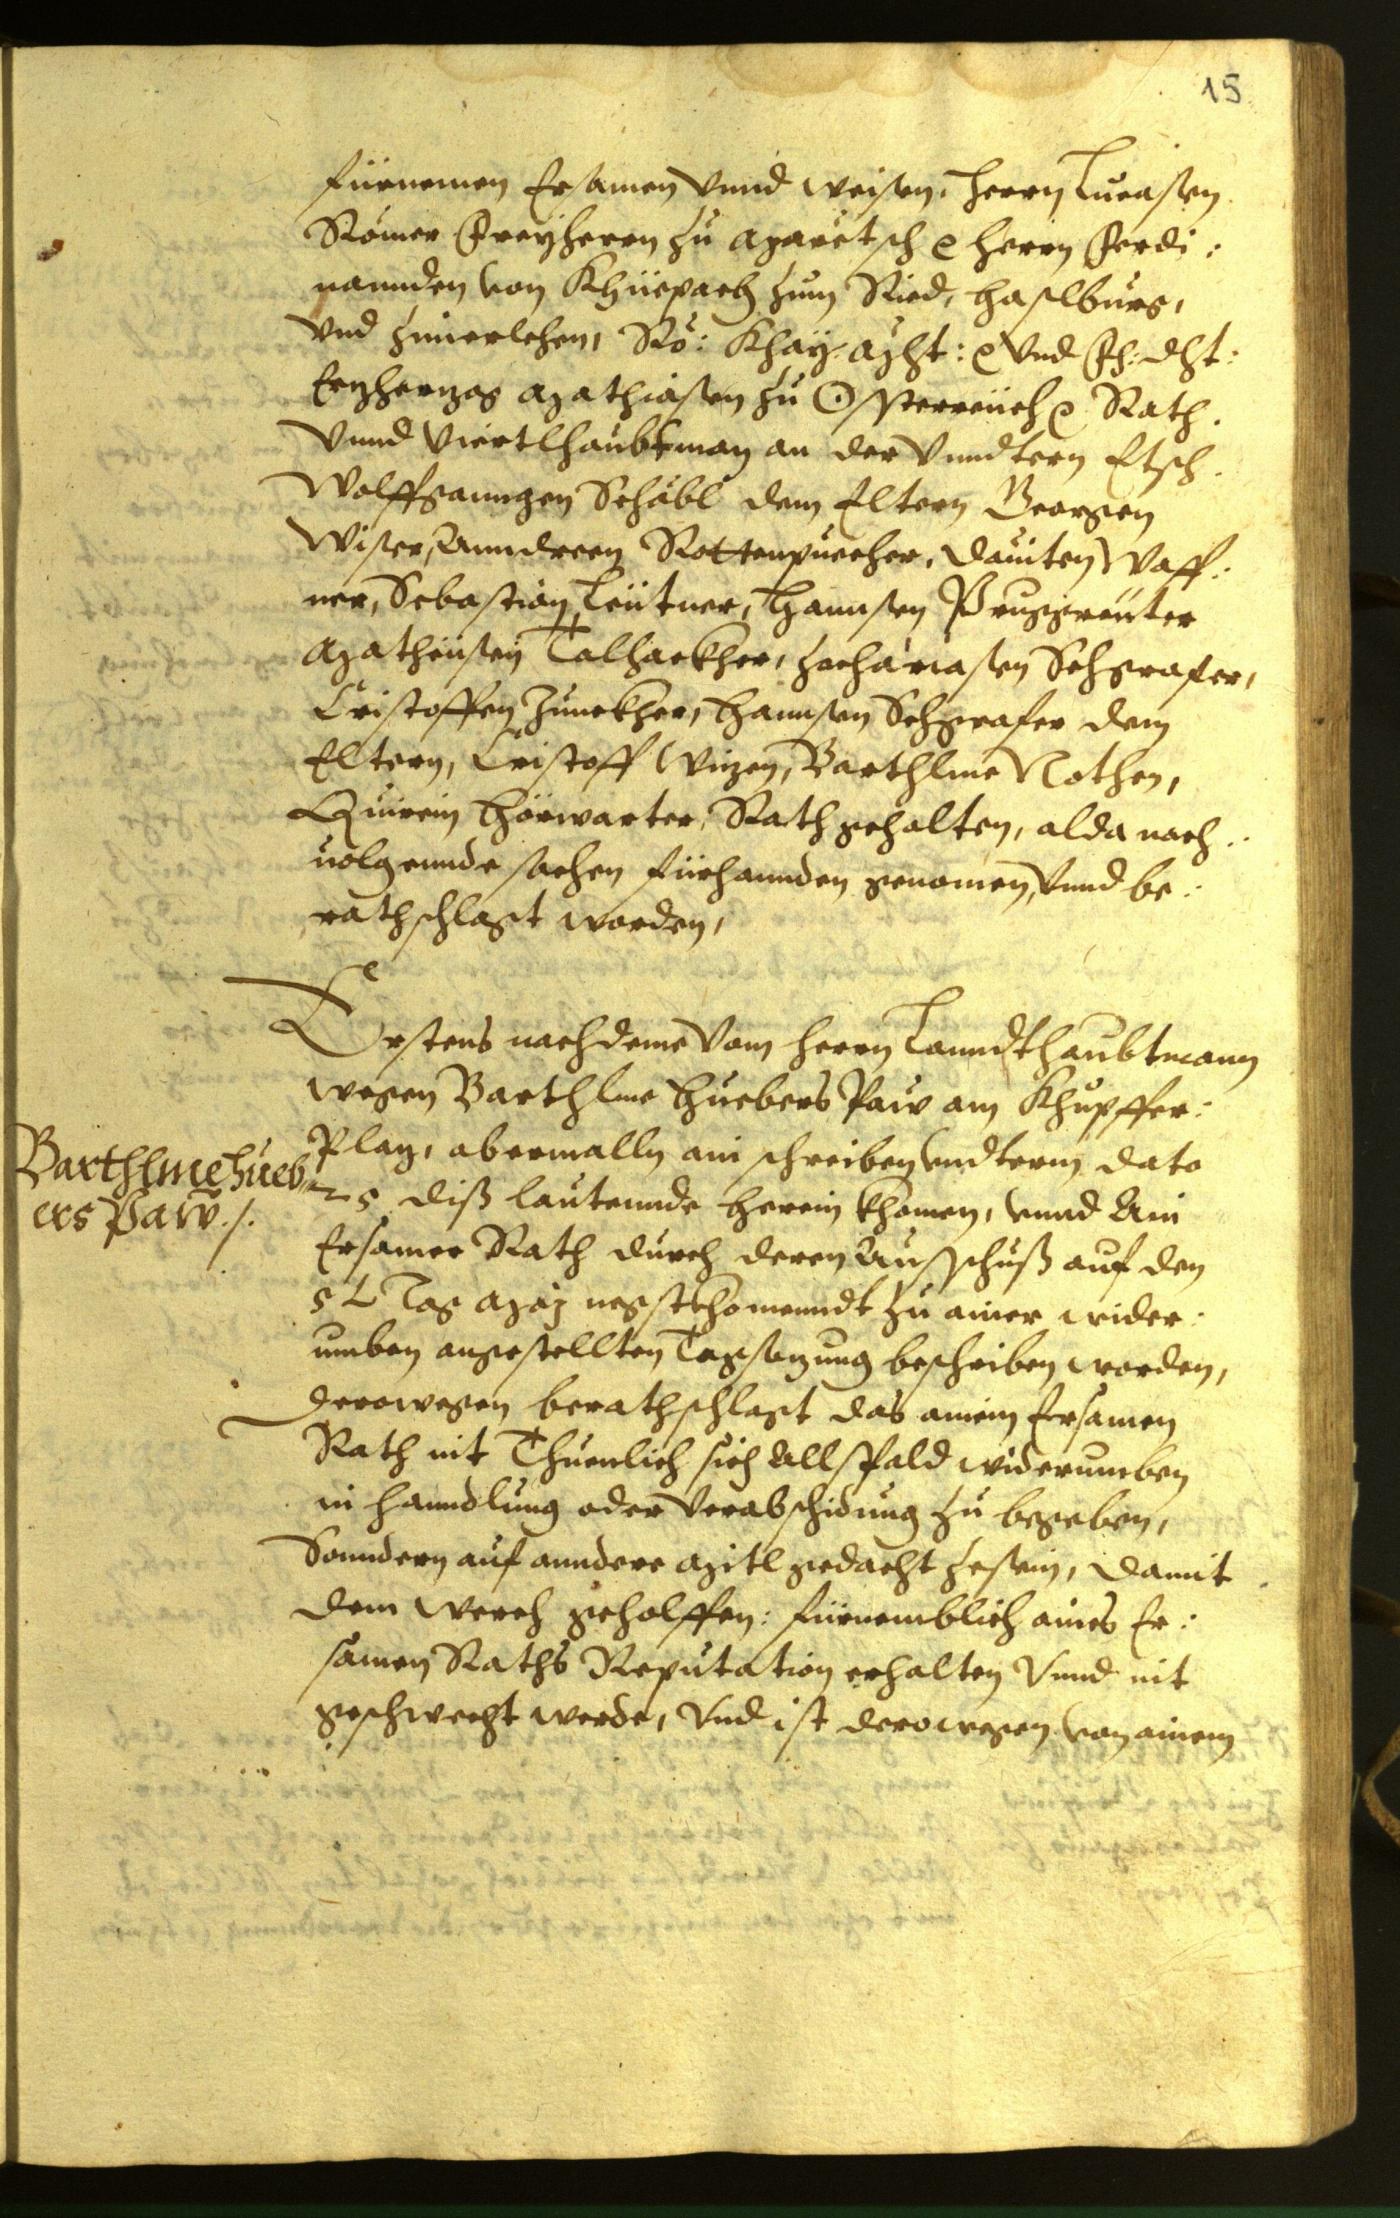 15
fürnemen Ersamen vnnd weisen, herrn Lucaßen
Römer Freyherrn zu Maretsch e herrn Ferdi:
nannden von Khüepach zum Ried, Haslburg,
vnd Zimerlehen, Rö: Khay: Mÿt: e vnd Fr: Dht:
Erzherzog Mathiaßen zu Ossterreich e Rath
vnnd Viertlhaubtman an der Vnndtern Etsch
Wolffganngen Schäbl dem Eltern Georgen
Wißer, Anndreen Rottenpuecher, Dauiten Waff:
ner, Sebastian Leütner, Hannsen Pruggreüter
Matheüsen Talhackher, Zachariaßen Schgrafer,
Cristoffen Zunckher, Hannsen Schgrafer dem
Eltern, Cristoff Wizen, Barthlme Nothen,
Quirein Hörwarter, Rath gehalten, alda nach
uolgennde sachen fürhannden genomen, vnnd be:
rathschlagt worden,
Erstens nachdeme vom herrn Lanndthaubtmann
wegen Barthlme Huebers Paw am Khupffer:
Plaz, abermalln ain schreiben vndterm dato
25 diß lautennde herein khomen, vnnd Ain
Ersamer Rath durch deren Ausschuß auf den
5t Tag Maÿ negstkhomenndt zu ainer wider:
umben angestellten Tagsazung beschriben worden,
Barthlme hueb
ers Paw ./.
derowegen berathschlagt das ainem Ersamen
Rath nit Thuenlich sich Allspald widerumben
in hanndlung oder Verabschidung zu begeben,
Sonndern auf anndere Mitl gedacht zesein, damit
dem werch geholffen: fürnemblich aines Er:
samen Raths Reputation erhalten vnnd nit
geschwecht werde, vnd ist derowegen von ainem